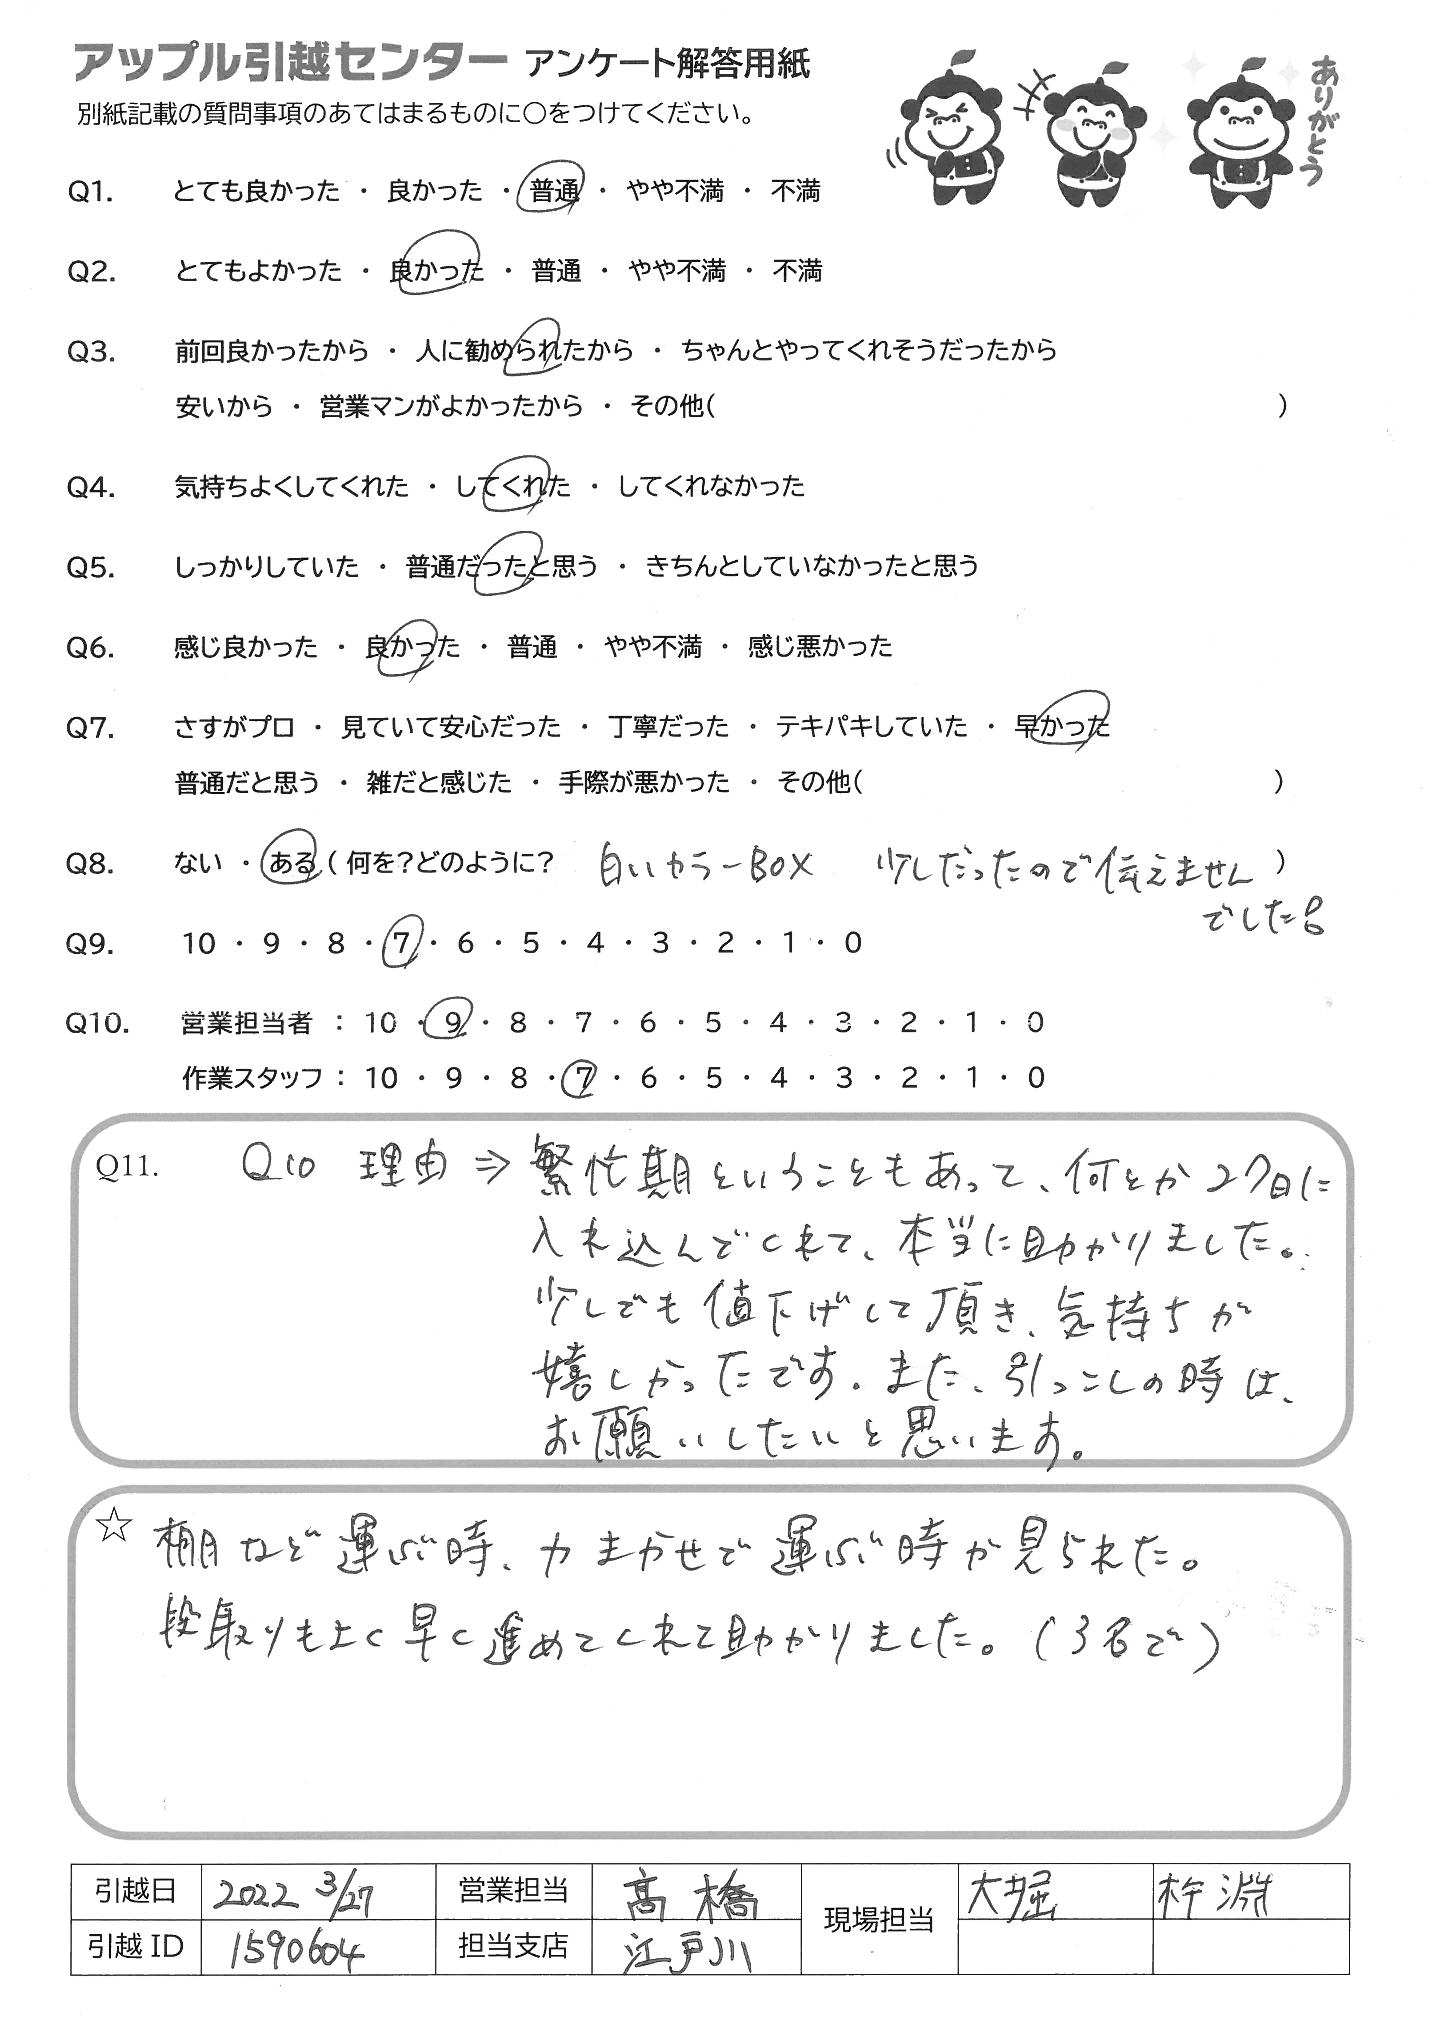 アップル引越センター アンケート解答用紙
別紙記載の質問事項のあてはまるものに○をつけてください。
ありがとう
Q1. とても良かった ・ 良かった ・ 普通 ・ やや不満 ・ 不満
Q2. とてもよかった ・ 良かった ・ 普通 ・ やや不満 ・ 不満
Q3. 前回良かったから ・ 人に勧められたから ・ ちゃんとやってくれそうだったから
安いから ・ 営業マンがよかったから ・ その他( )
Q4. 気持ちよくしてくれた ・ してくれた ・ してくれなかった
Q5. しっかりしていた ・ 普通だったと思う ・ きちんとしていなかったと思う
Q6. 感じ良かった ・ 良かった ・ 普通 ・ やや不満 ・ 感じ悪かった
Q7. さすがプロ ・ 見ていて安心だった ・ 丁寧だった ・ テキパキしていた ・ 早かった
普通だと思う ・ 雑だと感じた ・ 手際が悪かった ・ その他( )
Q8. ない ・ ある ( 何を?どのように? 白いカラーBOX 少しだったので伝えません )
でした。
Q9. 10 ・ 9 ・ 8 ・ 7 ・ 6 ・ 5 ・ 4 ・ 3 ・ 2 ・ 1 ・ 0
Q10. 営業担当者 : 10 ・ 9 ・ 8 ・ 7 ・ 6 ・ 5 ・ 4 ・ 3 ・ 2 ・ 1 ・ 0
作業スタッフ : 10 ・ 9 ・ 8 ・ 7 ・ 6 ・ 5 ・ 4 ・ 3 ・ 2 ・ 1 ・ 0
Q11. Q10 理由 ⇒ 繁忙期ということもあって、何とか27日に
入れ込んでくれて、本当に助かりました。
少しでも値下げして頂き、気持ちが
嬉しかったです。また、引っこしの時は、
お願いしたいと思います。
☆ 棚など運ぶ時、力まかせで運ぶ時が見られた。
段取りもよく早く進めてくれて助かりました。(3名で)
引越日 2022 3/27 営業担当 高橋 現場担当 大堀 杵淵
引越ID 1590604 担当支店 江戸川